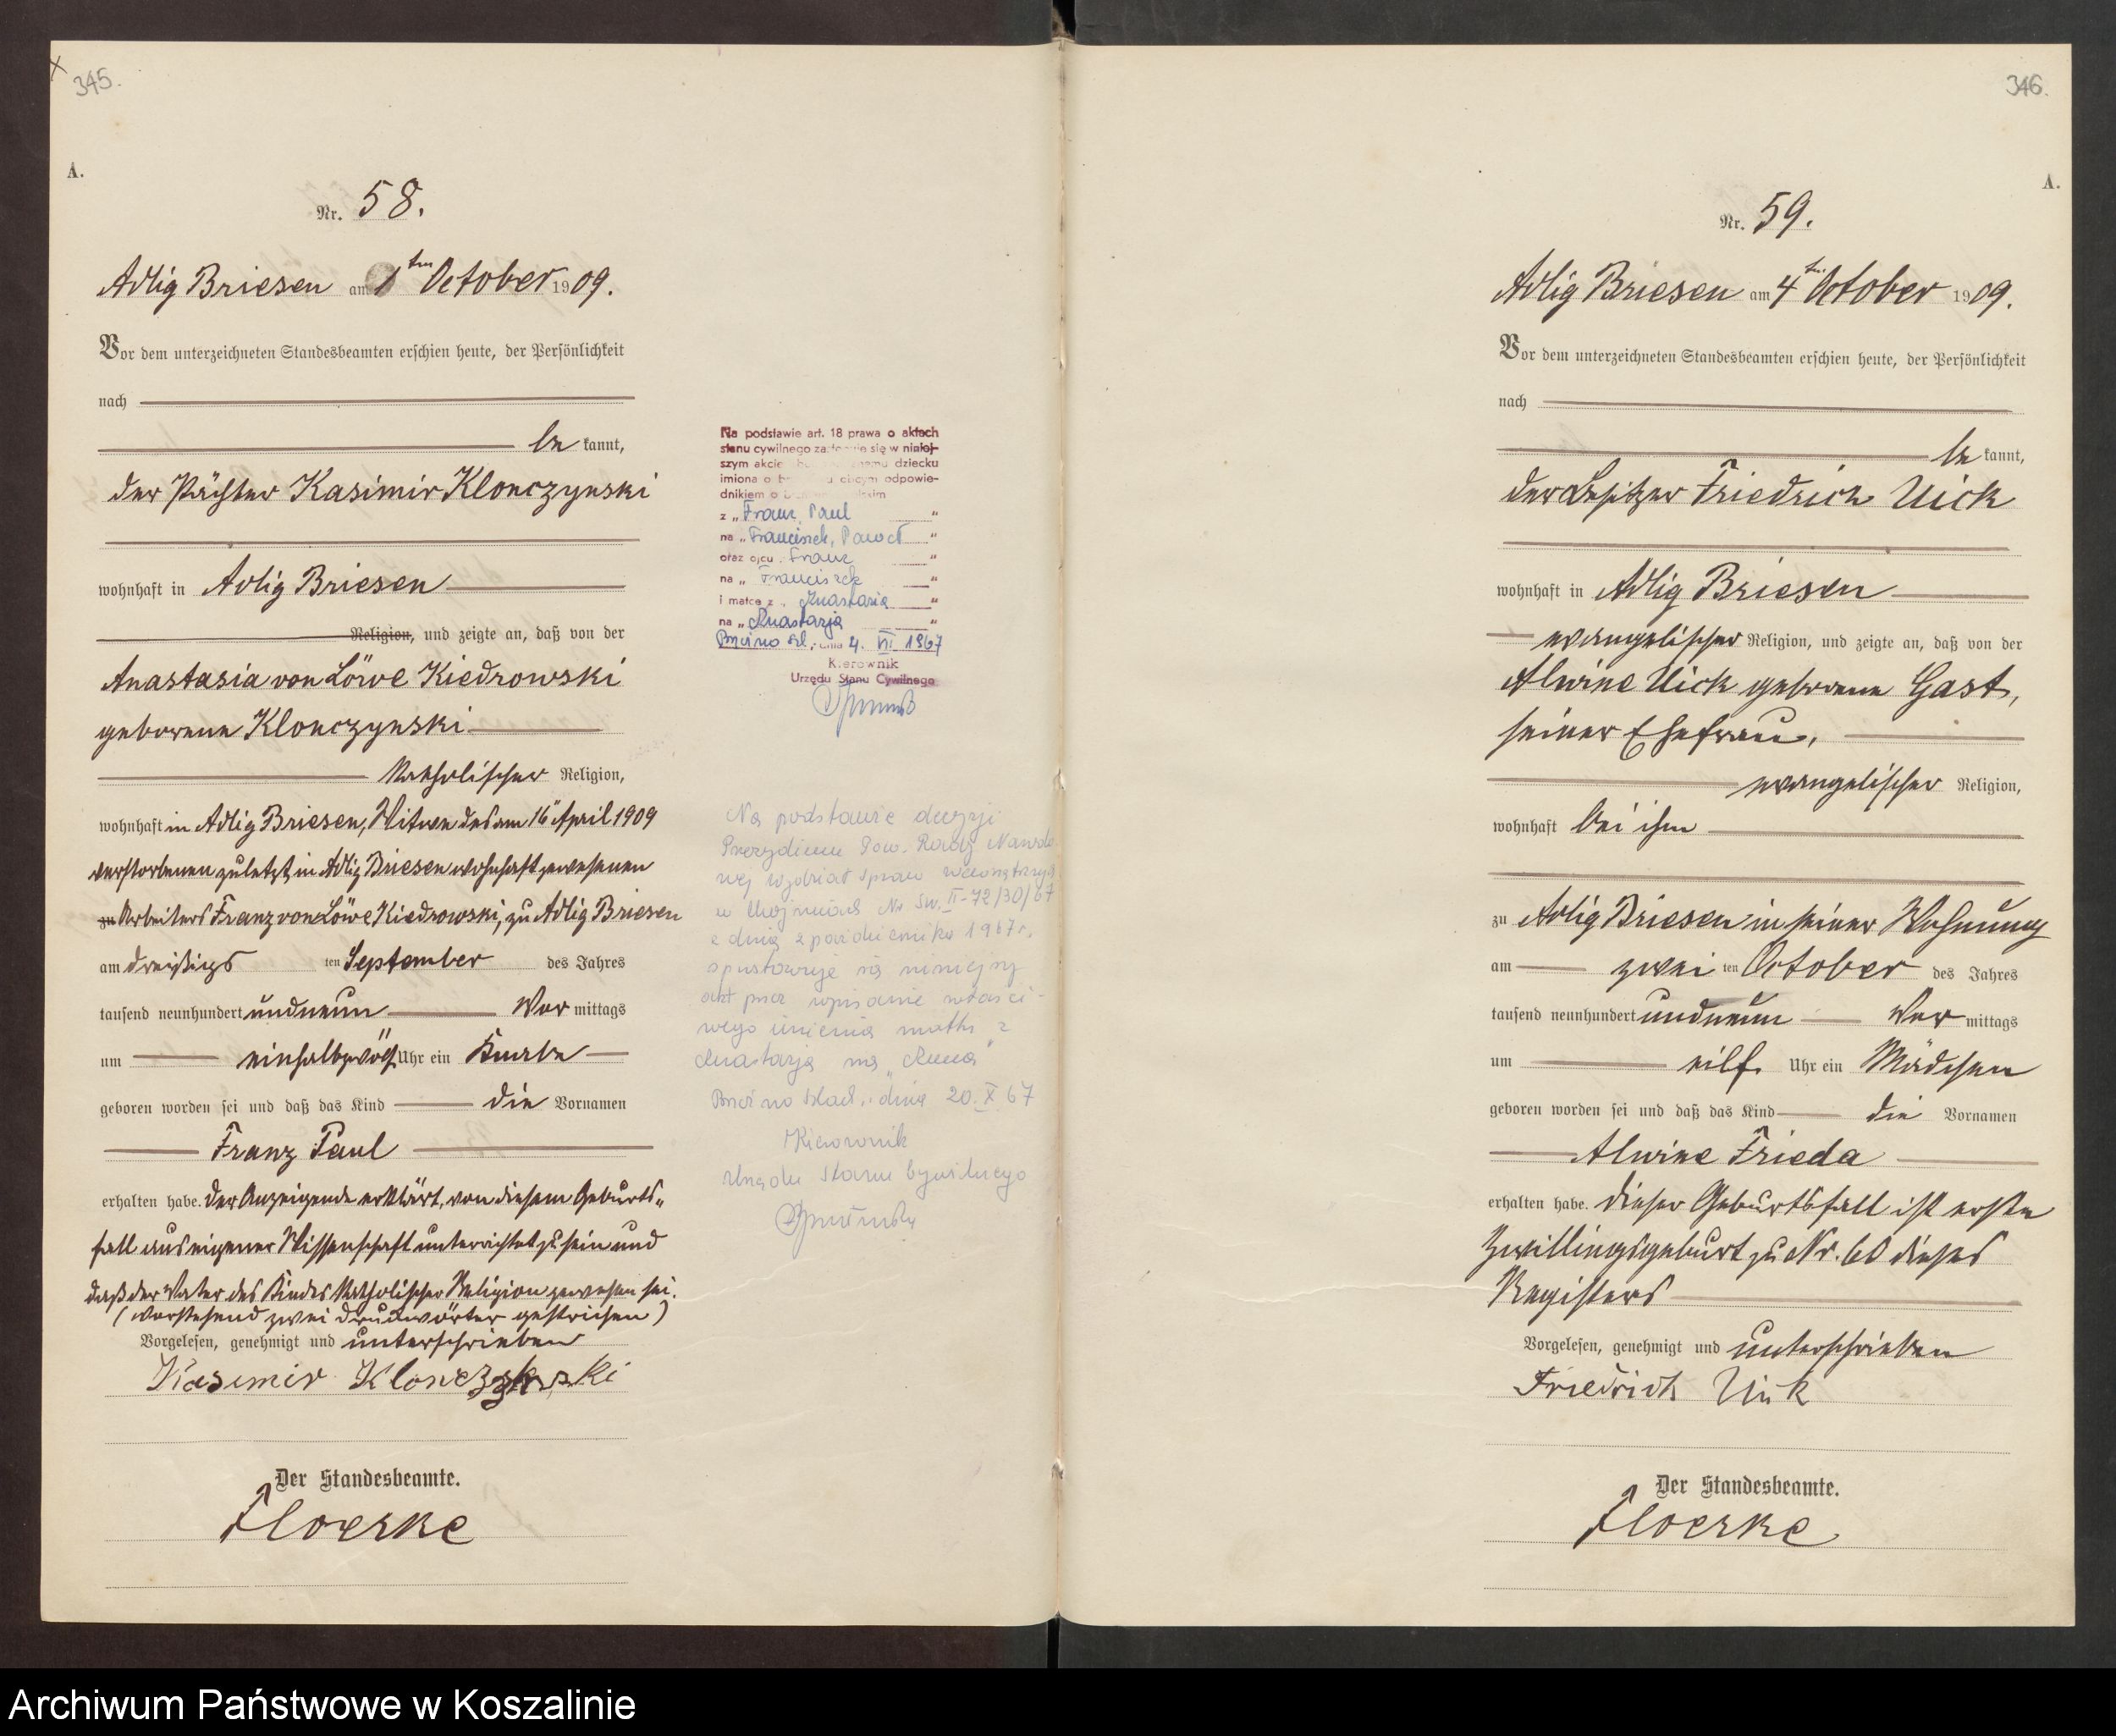 345.
A.
Nr. 58.
Adlig Briesen am 1ten October 1909.
Vor dem unterzeichneten Standesbeamten erschien heute, der Persönlichkeit
nach
be kannt,
der Pächter Kasimir Klonczynski
wohnhaft in Adlig Briesen
Religion, und zeigte an, daß von der
Anastasia von Löwe Kiedrowski
geborene Klonczynski
katholischer Religion,
wohnhaft in Adlig Briesen, Witwe des am 16 April 1909
verstorbenen zuletzt in Adlig Briesen wohnhaft gewesenen
zu Arbeiters Franz von Löwe Kiedrowski, zu Adlig Briesen
am dreißigs ten September des Jahres
tausend neunhundert und neun Vor mittags
um einhalbzwölf Uhr ein Knabe
geboren worden sei und daß das Kind die Vornamen
Franz Paul
erhalten habe. Der Anzeigende erklärt, von diesem Geburts-
fall aus eigener Wissenschaft unterrichtet zu sein und
daß der Vater des Kindes katholischer Religion gewesen sei.
(Vorstehend zwei Druckwörter gestrichen)
Vorgelesen, genehmigt und unterschrieben
Kasimir Klonczynski
Der Standesbeamte.
Floerke
Na podstawie art. 18 prawa o aktach
stanu cywilnego się w niniej-
szym akcie dziecku
imiona o obcym odpowie-
dnikiem o
z „Franz Paul"
na „Franciszek, Paweł"
oraz ojcu „Franz"
na „Franciszek"
i matce z „Anastasia"
na „Anastazja"
dnia 4. VI 1967
Kierownik
Urzędu Stanu Cywilnego
Na podstawie decyzji
Prezydium Pow. Rady Narodo-
wej Wydział Spraw Wewnętrznych
w Chojnicach Nr Sw. II-72/30/67
z dnia 2 października 1967 r.
sprostowuje się niniejszy
akt przez wpisanie właści-
wego imienia matki z
Anastazja na „Anna"
dnia 20. X 67
Kierownik
Urzędu Stanu Cywilnego
346.
A.
Nr. 59.
Adlig Briesen am 4ten October 1909.
Vor dem unterzeichneten Standesbeamten erschien heute, der Persönlichkeit
nach
be kannt,
der Besitzer Friedrich Uick
wohnhaft in Adlig Briesen
evangelischer Religion, und zeigte an, daß von der
Alwine Uick geborene Gast,
seiner Ehefrau,
evangelischer Religion,
wohnhaft bei ihm
zu Adlig Briesen in seiner Wohnung
am zwei ten October des Jahres
tausend neunhundert und neun Vor mittags
um eilf Uhr ein Mädchen
geboren worden sei und daß das Kind die Vornamen
Alwine Frieda
erhalten habe. Dieser Geburtsfall ist erste
Zwillingsgeburt zu Nr. 60 dieses
Registers
Vorgelesen, genehmigt und unterschrieben
Friedrich Uick
Der Standesbeamte.
Floerke
Archiwum Państwowe w Koszalinie